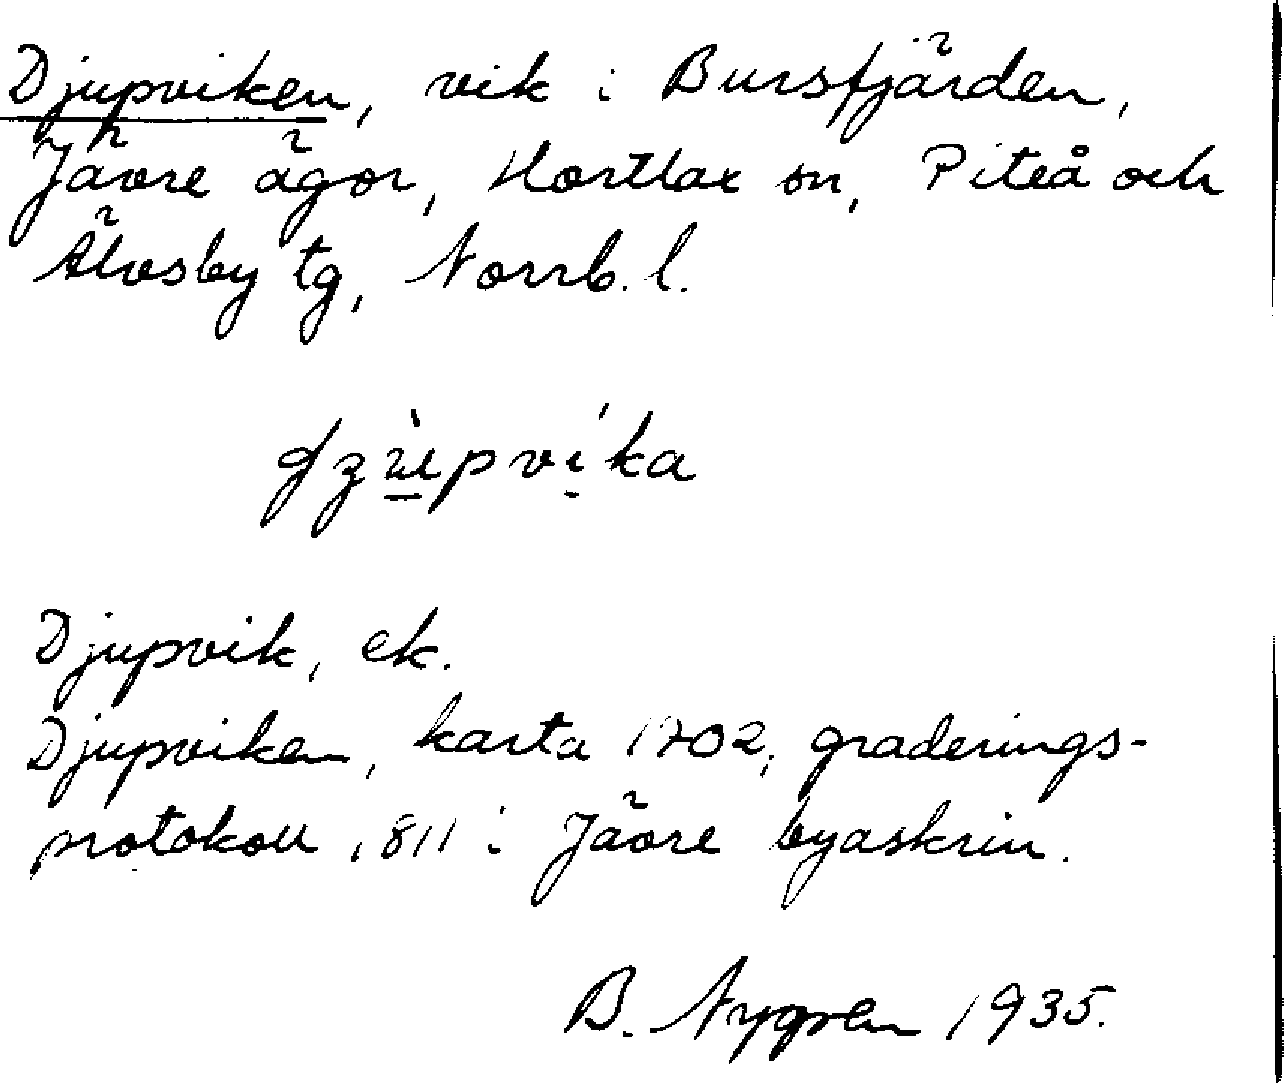 Djupviken, vik i Bursfjärden,
Jävre ägor, Hortlax sn, Piteå och
Älvsby tg, Norrb. l.
Djupvik, ek.
Djupviken, karta 1702, graderings-
protokoll 1811 i Jävre byaskrin.
B. Nygren 1935.